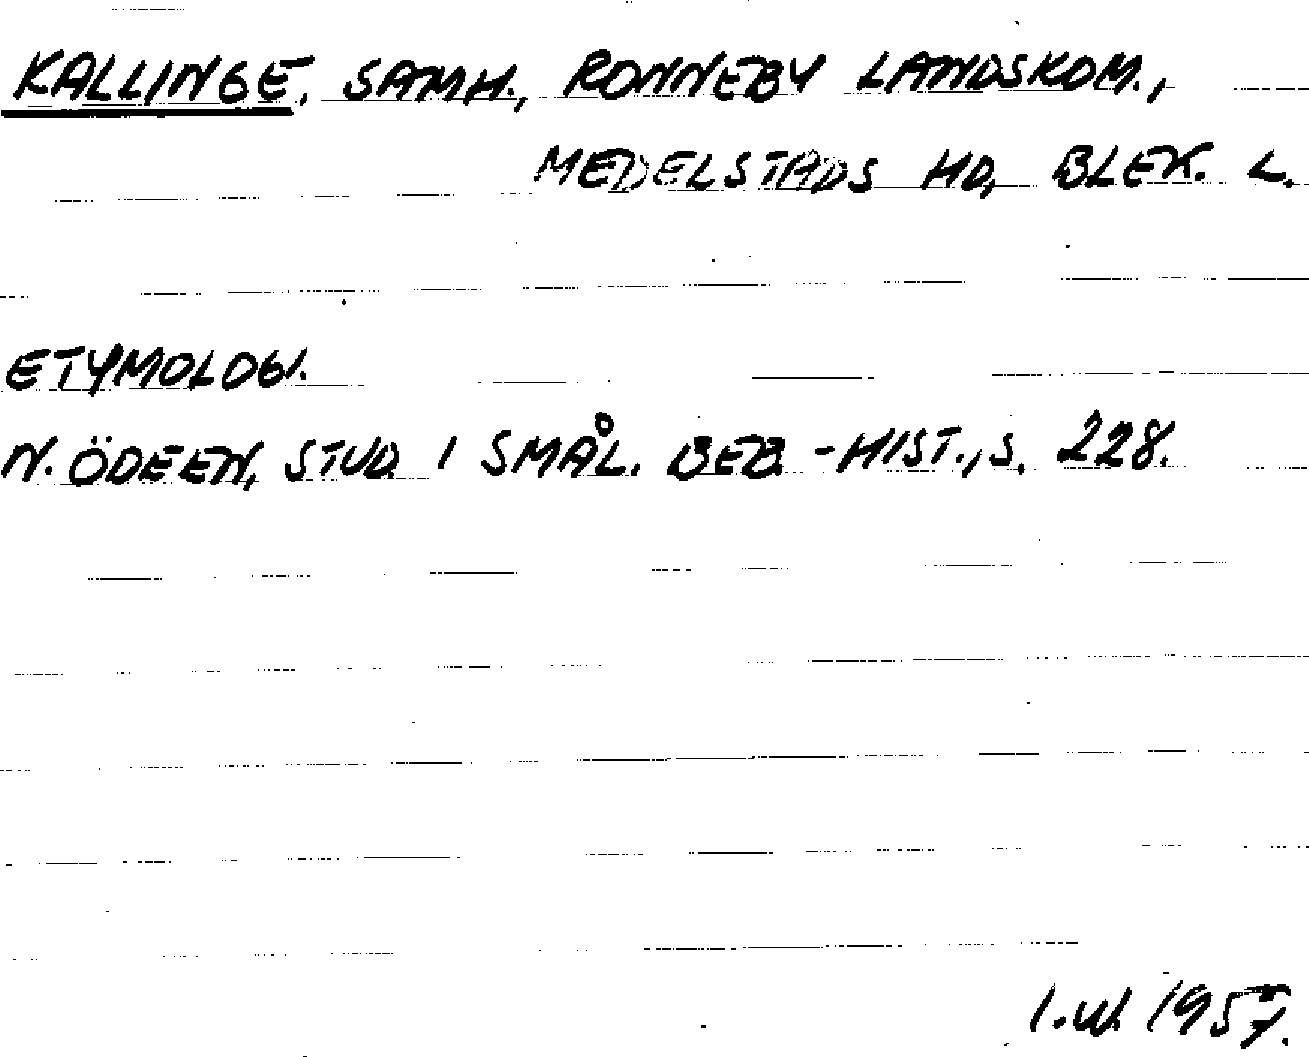 KALLINGE, SAMH., RONNEBY LANDSKOM.,
MEDELSTADS HD, BLEK. L.
ETYMOLOGI.
N. ÖDEEN, STUD. I SMÅL. BEB.-HIST., S. 228.
I.W. 1957.